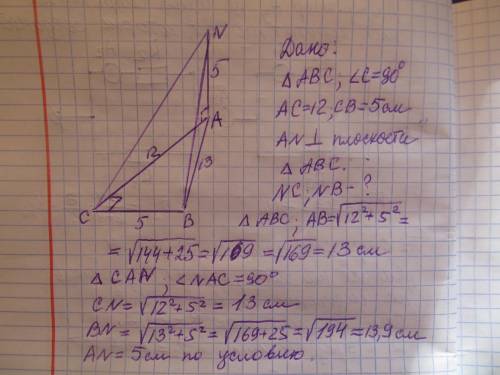 N
5
A
12
13
C
5
B
Дано:
△ABC; ∠C=90°
AC=12, CB=5см
AN⊥ плоскости
△ABC.
NC, NB-?
△ABC; AB=√12²+5²=
=√144+25=√169=√169=13см
△CAN; ∠NAC=90°
CN=√12²+5²=13см
BN=√13²+5²=√169+25=√194=13,9см
AN=5см по условию.